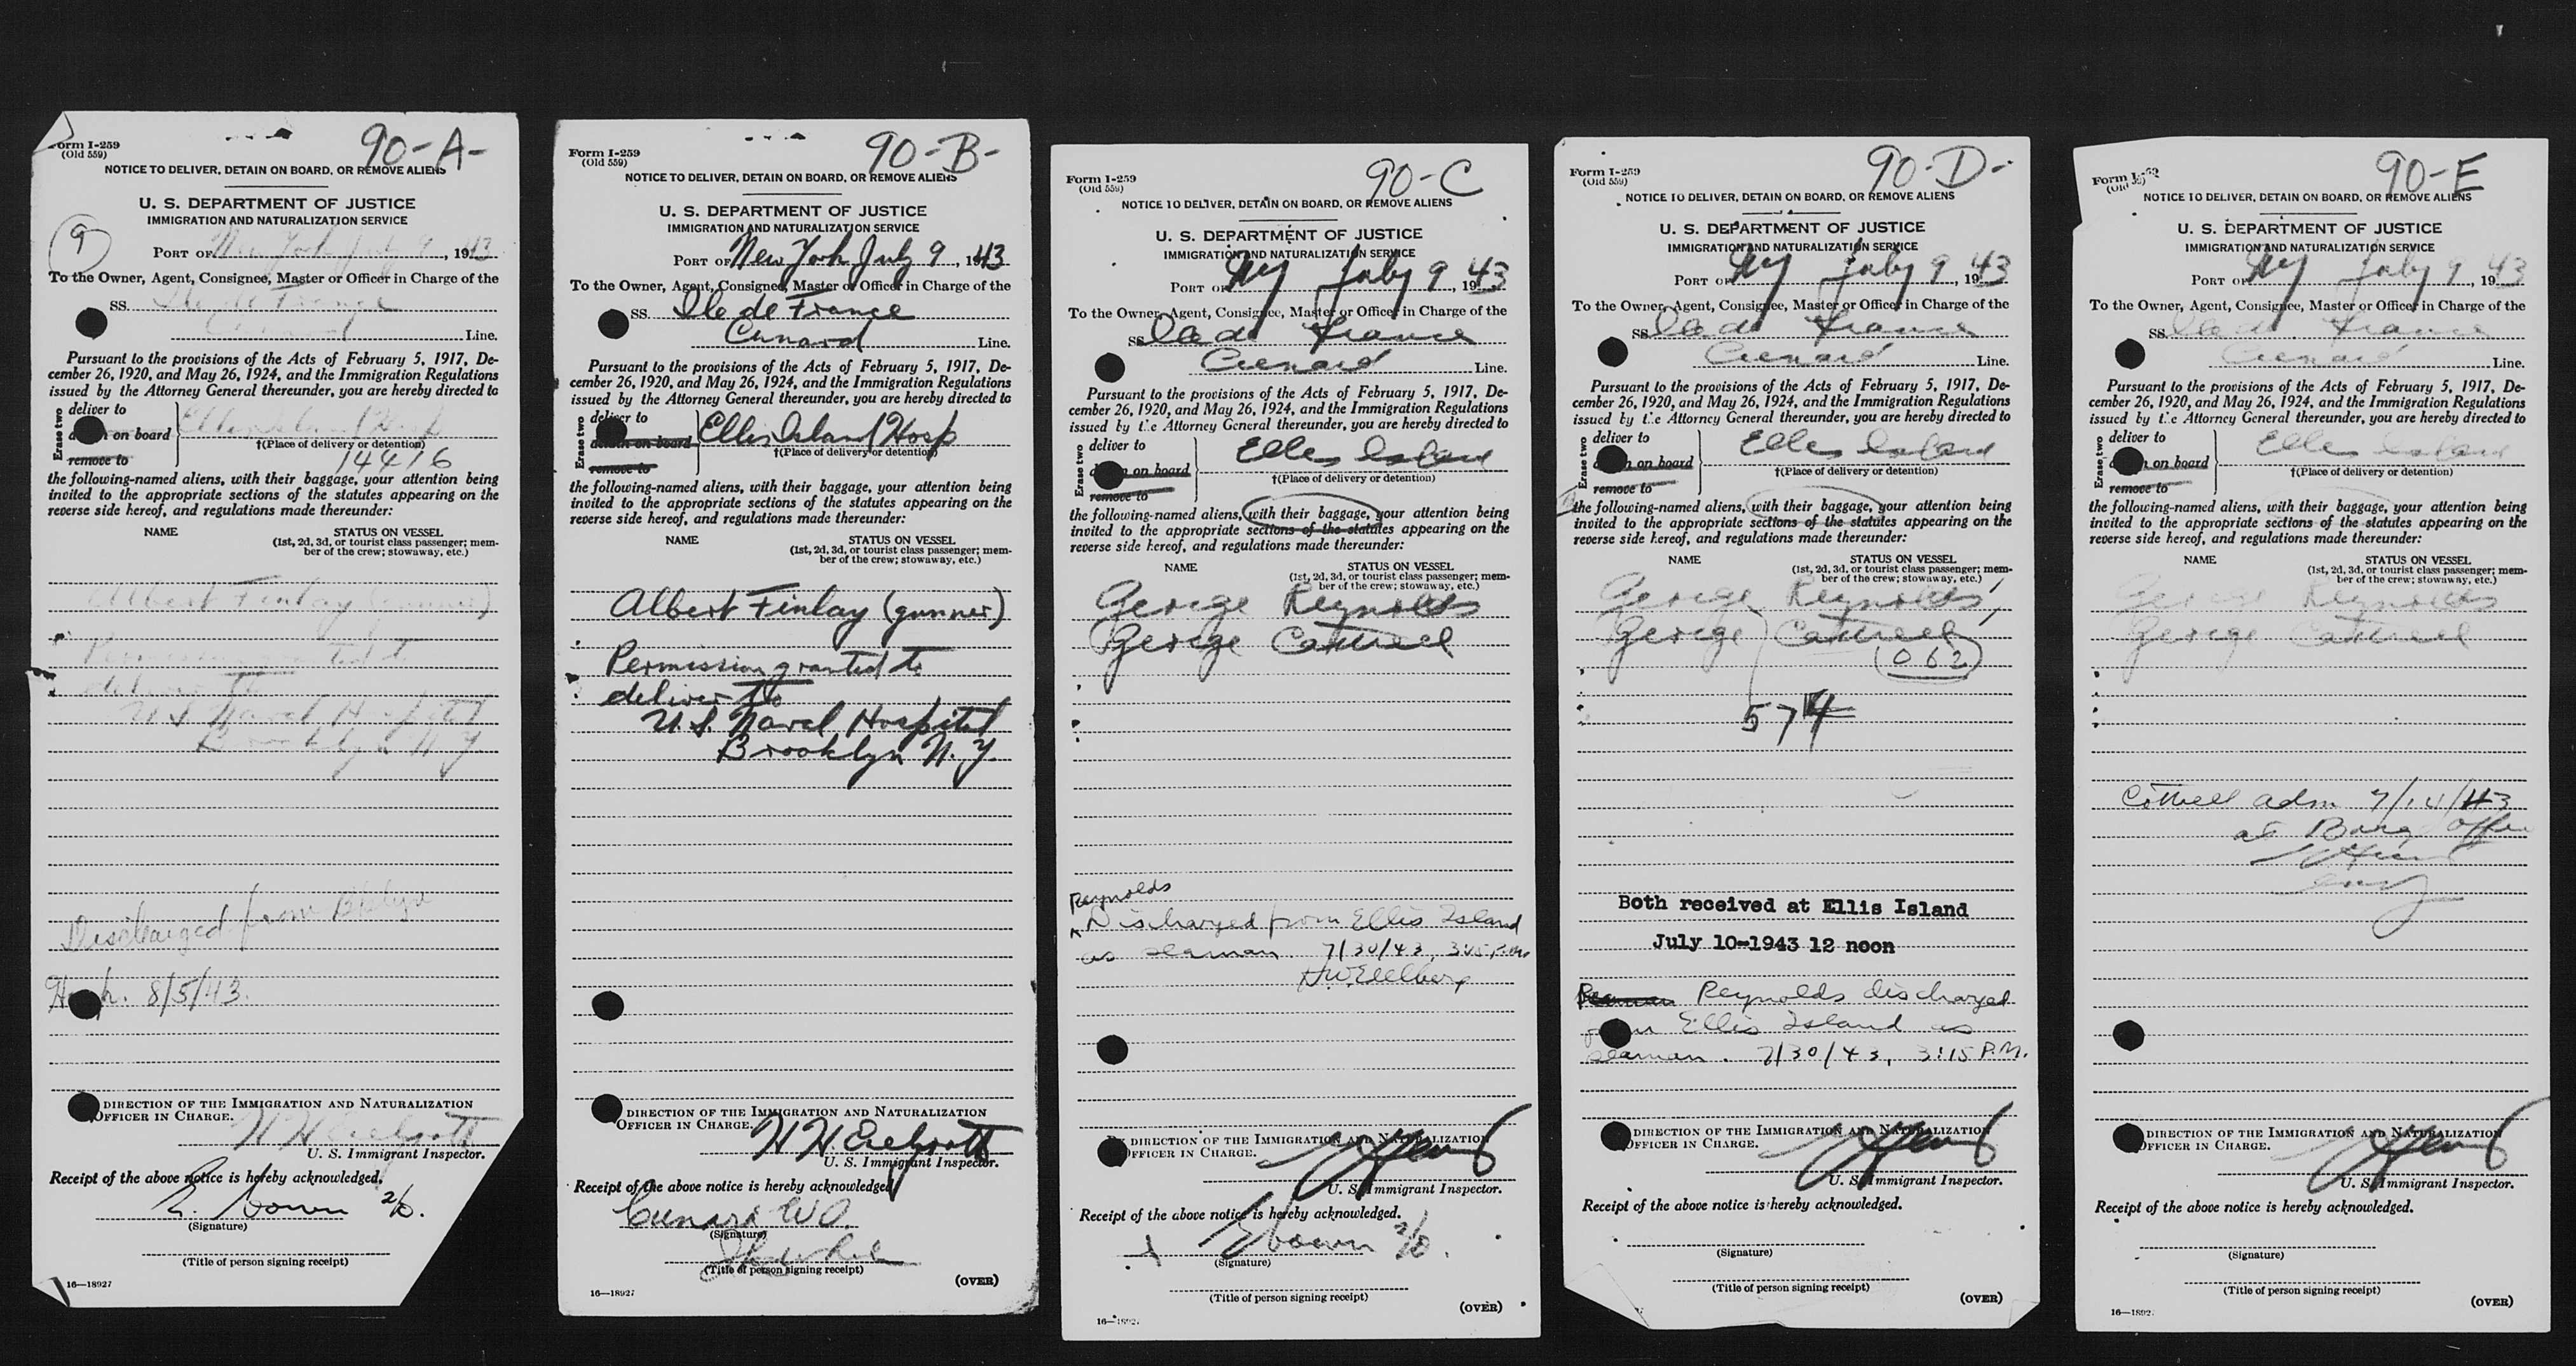 90-A-
Form I-259
(Old 559)
NOTICE TO DELIVER, DETAIN ON BOARD, OR REMOVE ALIENS
U. S. DEPARTMENT OF JUSTICE
IMMIGRATION AND NATURALIZATION SERVICE
9
PORT OF New York July 9, 1943
To the Owner, Agent, Consignee, Master or Officer in Charge of the
SS. Ile de France
Cunard Line.
Pursuant to the provisions of the Acts of February 5, 1917, De-
cember 26, 1920, and May 26, 1924, and the Immigration Regulations
issued by the Attorney General thereunder, you are hereby directed to
Erase two
deliver to
on board Ellis Island Hosp
†(Place of delivery or detention)
remove to 14416
the following-named aliens, with their baggage, your attention being
invited to the appropriate sections of the statutes appearing on the
reverse side hereof, and regulations made thereunder:
NAME STATUS ON VESSEL
(1st, 2d, 3d, or tourist class passenger; mem-
ber of the crew; stowaway, etc.)
Albert Finlay (gunner)
Permission granted to
deliver to
U.S. Naval Hospital
Brooklyn N.Y.
Discharged from Bklyn
Hosp. 8/5/43.
DIRECTION OF THE IMMIGRATION AND NATURALIZATION
OFFICER IN CHARGE.
U. S. Immigrant Inspector.
Receipt of the above notice is hereby acknowledged.
2/0.
(Signature)
(Title of person signing receipt)
16—18927
90-B-
Form I-259
(Old 559)
NOTICE TO DELIVER, DETAIN ON BOARD, OR REMOVE ALIENS
U. S. DEPARTMENT OF JUSTICE
IMMIGRATION AND NATURALIZATION SERVICE
PORT OF New York July 9, 1943
To the Owner, Agent, Consignee, Master or Officer in Charge of the
SS. Ile de France
Cunard Line.
Pursuant to the provisions of the Acts of February 5, 1917, De-
cember 26, 1920, and May 26, 1924, and the Immigration Regulations
issued by the Attorney General thereunder, you are hereby directed to
Erase two
deliver to
on board Ellis Island Hosp
†(Place of delivery or detention)
remove to
the following-named aliens, with their baggage, your attention being
invited to the appropriate sections of the statutes appearing on the
reverse side hereof, and regulations made thereunder:
NAME STATUS ON VESSEL
(1st, 2d, 3d, or tourist class passenger; mem-
ber of the crew; stowaway, etc.)
Albert Finlay (gunner)
Permission granted to
deliver to
U.S. Naval Hospital
Brooklyn N.Y.
DIRECTION OF THE IMMIGRATION AND NATURALIZATION
OFFICER IN CHARGE.
U. S. Immigrant Inspector.
Receipt of the above notice is hereby acknowledged
Cunard W.
(Signature)
(Title of person signing receipt)
(OVER)
16—18927
90-C
Form I-259
(Old 559)
NOTICE TO DELIVER, DETAIN ON BOARD, OR REMOVE ALIENS
U. S. DEPARTMENT OF JUSTICE
IMMIGRATION AND NATURALIZATION SERVICE
PORT OF NY July 9, 1943
To the Owner, Agent, Consignee, Master or Officer in Charge of the
SS. Ile de France
Cunard Line.
Pursuant to the provisions of the Acts of February 5, 1917, De-
cember 26, 1920, and May 26, 1924, and the Immigration Regulations
issued by the Attorney General thereunder, you are hereby directed to
Erase two
deliver to
on board Ellis Island
†(Place of delivery or detention)
remove to
the following-named aliens, with their baggage, your attention being
invited to the appropriate sections of the statutes appearing on the
reverse side hereof, and regulations made thereunder:
NAME STATUS ON VESSEL
(1st, 2d, 3d, or tourist class passenger; mem-
ber of the crew; stowaway, etc.)
George Reynolds
George Cottrell
Reynolds
Discharged from Ellis Island
as seaman. 7/30/43, P.M.
DIRECTION OF THE IMMIGRATION AND NATURALIZATION
OFFICER IN CHARGE.
U. S. Immigrant Inspector.
Receipt of the above notice is hereby acknowledged.
2/0.
(Signature)
(Title of person signing receipt)
(OVER)
16—18927
90-D-
Form I-259
(Old 559)
NOTICE TO DELIVER, DETAIN ON BOARD, OR REMOVE ALIENS
U. S. DEPARTMENT OF JUSTICE
IMMIGRATION AND NATURALIZATION SERVICE
PORT OF NY July 9, 1943
To the Owner, Agent, Consignee, Master or Officer in Charge of the
SS. Ile de France
Cunard Line.
Pursuant to the provisions of the Acts of February 5, 1917, De-
cember 26, 1920, and May 26, 1924, and the Immigration Regulations
issued by the Attorney General thereunder, you are hereby directed to
Erase two
deliver to
on board Ellis Island
†(Place of delivery or detention)
remove to
the following-named aliens, with their baggage, your attention being
invited to the appropriate sections of the statutes appearing on the
reverse side hereof, and regulations made thereunder:
NAME STATUS ON VESSEL
(1st, 2d, 3d, or tourist class passenger; mem-
ber of the crew; stowaway, etc.)
George Reynolds
George Cottrell
062
574
Both received at Ellis Island
July 10-1943 12 noon
Reynolds discharged
from Ellis Island as
seaman. 7/30/43, 3:15 P.M.
DIRECTION OF THE IMMIGRATION AND NATURALIZATION
OFFICER IN CHARGE.
U. S. Immigrant Inspector.
Receipt of the above notice is hereby acknowledged.
(Signature)
(Title of person signing receipt)
(OVER)
90-E
Form I-259
(Old 559)
NOTICE TO DELIVER, DETAIN ON BOARD, OR REMOVE ALIENS
U. S. DEPARTMENT OF JUSTICE
IMMIGRATION AND NATURALIZATION SERVICE
PORT OF NY July 9, 1943
To the Owner, Agent, Consignee, Master or Officer in Charge of the
SS. Ile de France
Cunard Line.
Pursuant to the provisions of the Acts of February 5, 1917, De-
cember 26, 1920, and May 26, 1924, and the Immigration Regulations
issued by the Attorney General thereunder, you are hereby directed to
Erase two
deliver to
on board Ellis Island
†(Place of delivery or detention)
remove to
the following-named aliens, with their baggage, your attention being
invited to the appropriate sections of the statutes appearing on the
reverse side hereof, and regulations made thereunder:
NAME STATUS ON VESSEL
(1st, 2d, 3d, or tourist class passenger; mem-
ber of the crew; stowaway, etc.)
George Reynolds
George Cottrell
adm 7/14/43
at Barge Office
DIRECTION OF THE IMMIGRATION AND NATURALIZATION
OFFICER IN CHARGE.
U. S. Immigrant Inspector.
Receipt of the above notice is hereby acknowledged.
(Signature)
(Title of person signing receipt)
(OVER)
16—18927